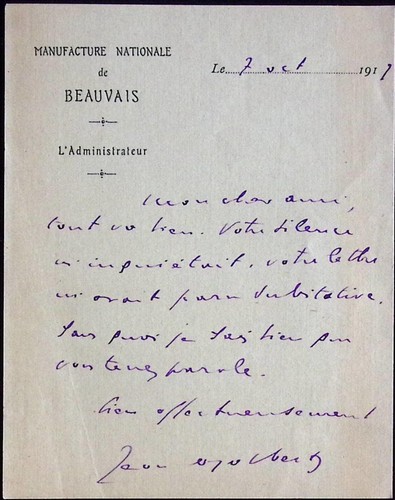 MANUFACTURE NATIONALE
de
BEAUVAIS
L'Administrateur
Le 7 oct 1917
Mon cher ami,
tout va bien. Votre silence
m'inquiétait, votre lettre
m'avait paru dubitative.
Sans quoi je sais bien que
vous tenez parole.
bien affectueusement
Jean Ajalbert